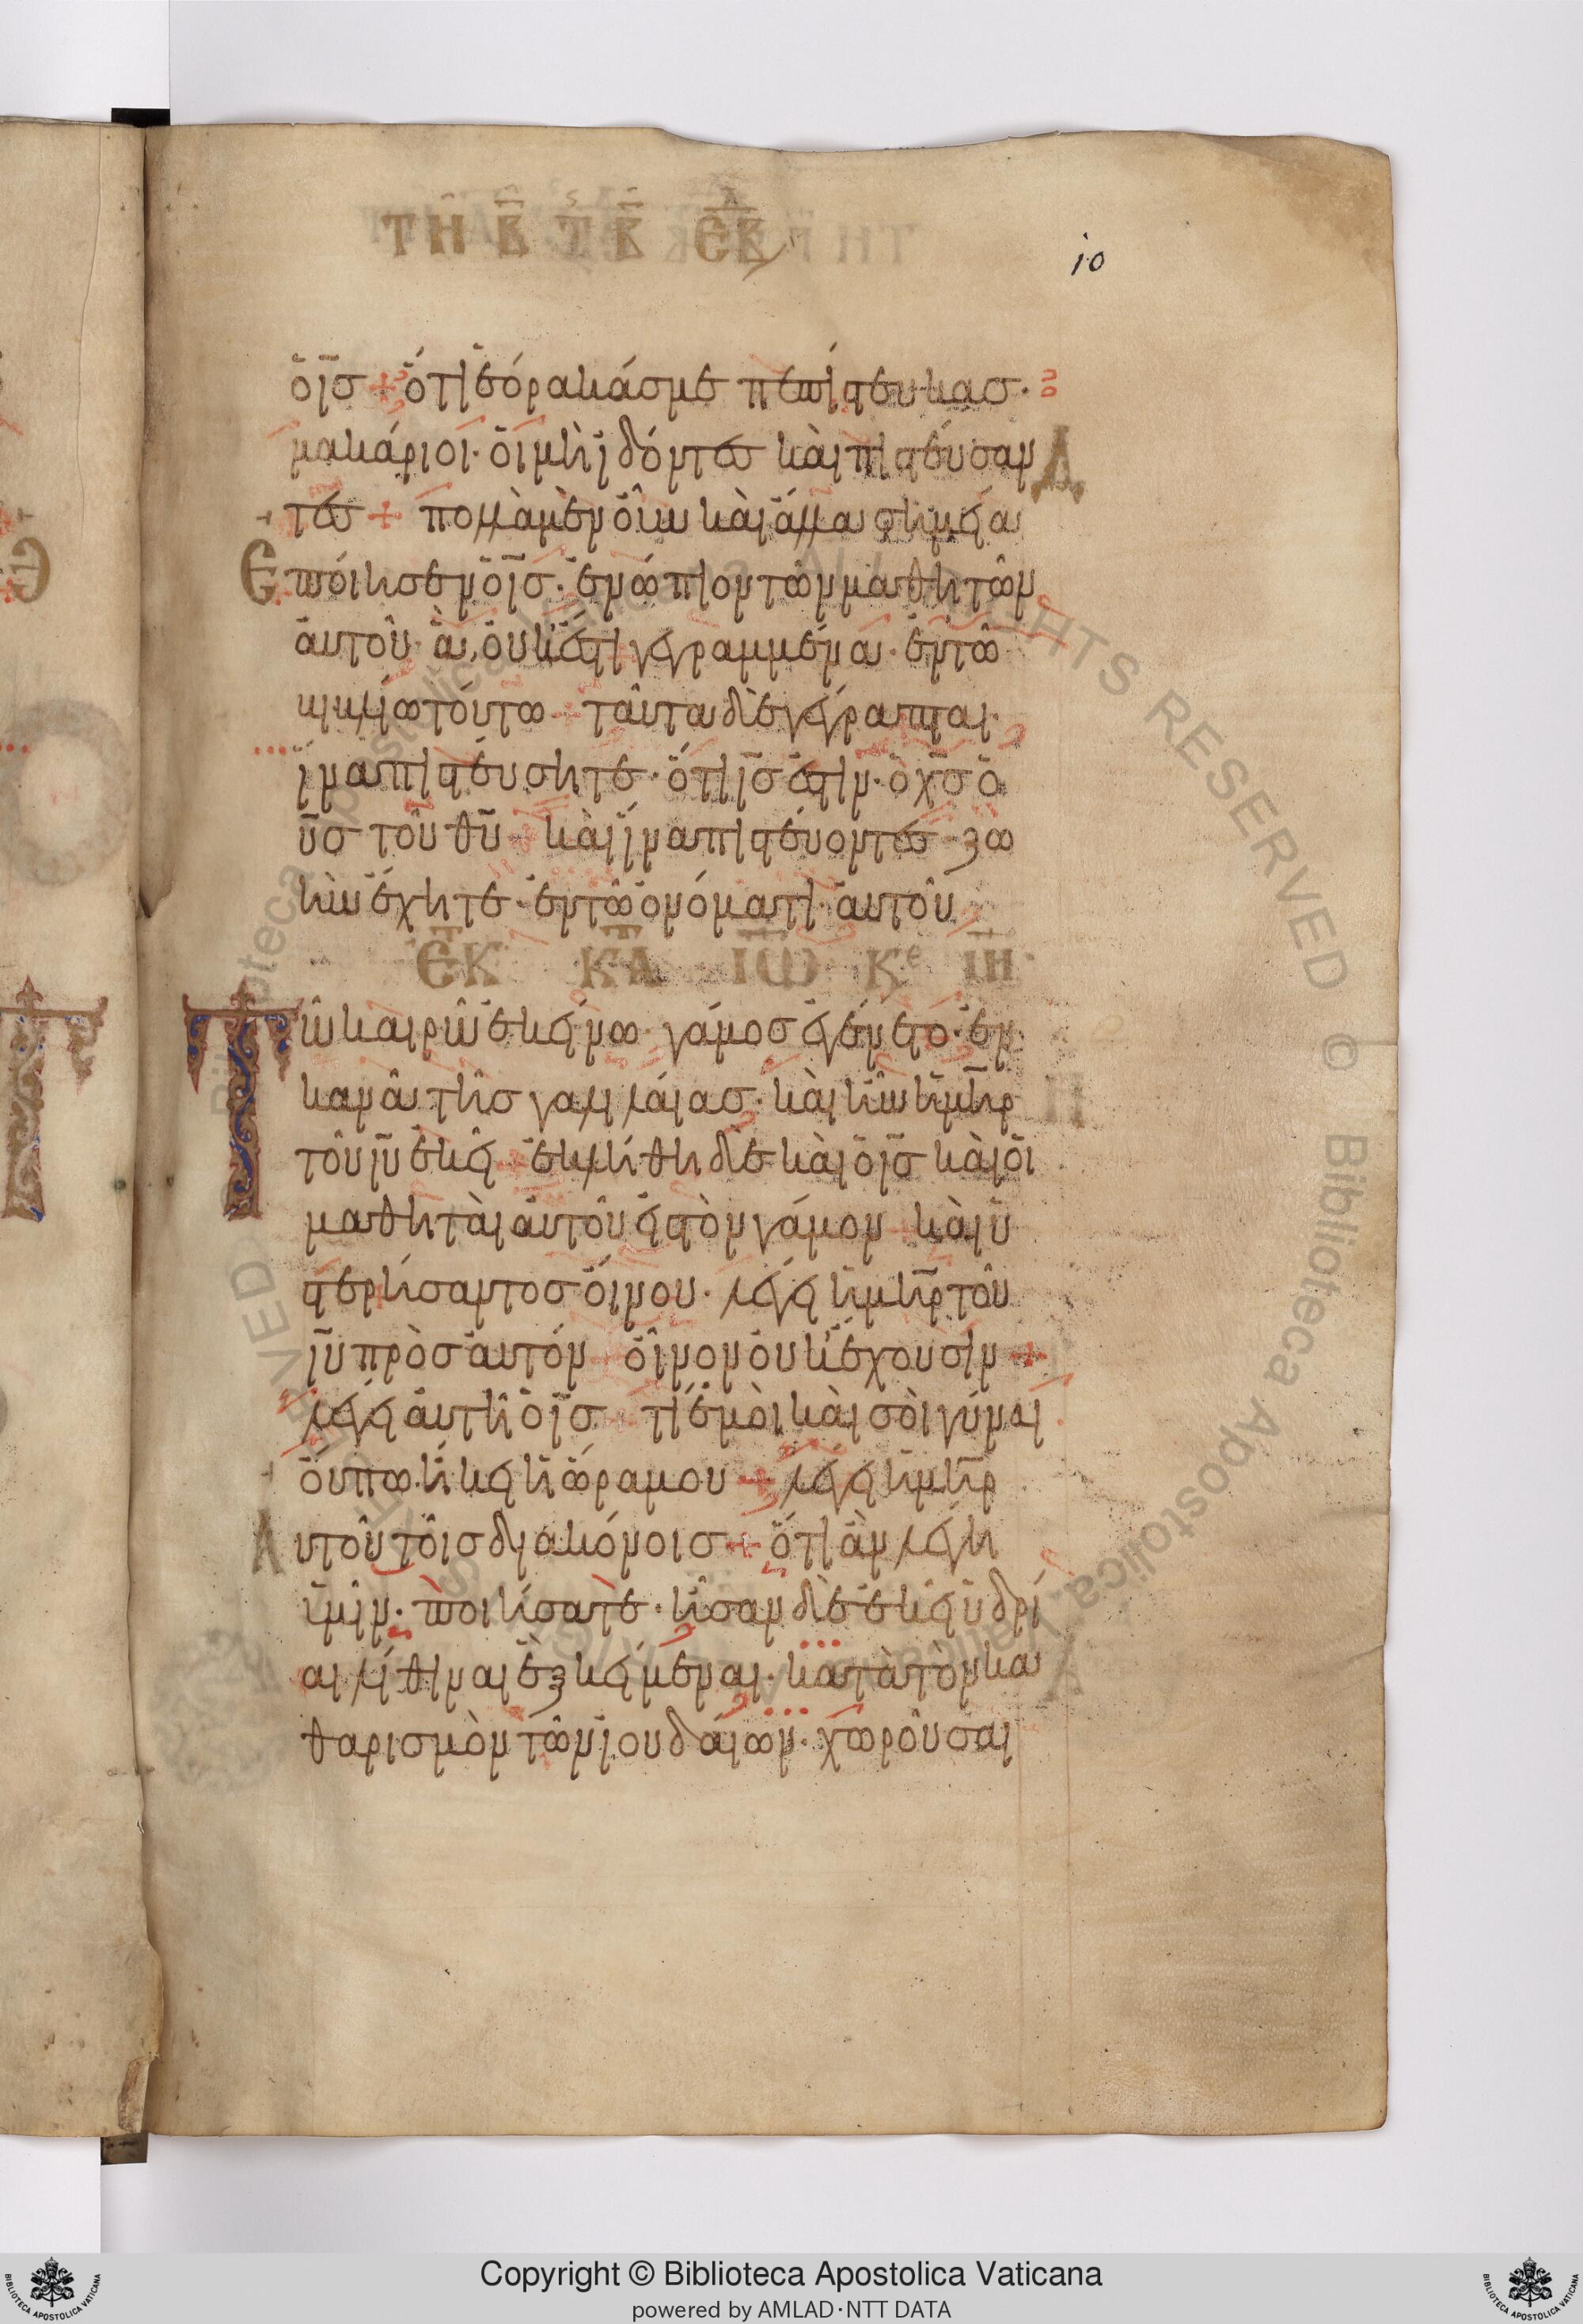 ΤΗ Β Τ Β ΕΒ
10
ὁ ι̅σ̅ + ὅτι ἑόρακάσ με πεπίστευκασ·
μακάριοι· οἱ μὴ ἰδόντεσ καὶ πιστεύσαν
τεσ + πολλὰ μὲν οὖν καὶ ἄλλα σημεῖα
Ἐποίησεν ὁ ι̅σ̅· ἐνώπιον τῶν μαθητῶν
αὐτοῦ· ἃ οὐκ ἔστι γεγραμμένα· ἐν τῶ
βιβλίω τούτω + ταῦτα δὲ γέγραπται·
ἵνα πιστεύσητε· ὅτι ι̅σ̅ ἐστιν· ὁ χ̅σ̅ ὁ
υ̅σ̅ τοῦ θ̅υ̅ + καὶ ἵνα πιστεύοντεσ ζω
ὴν ἔχητε· ἐν τῶ ὀνόματι αὐτοῦ
ΕΚ ΚΤΑ ΙΩ ΚΕ ΙΗ
Τῶ καιρῶ ἐκείνω· γάμοσ ἐγένετο· ἐν
κανᾶ τῆσ γαλιλαίασ· καὶ ἦν ἡ μ̅η̅ρ̅
τοῦ ι̅υ̅ ἐκεῖ + ἐκλήθη δὲ καὶ ὁ ι̅σ̅ καὶ οἱ
μαθηταὶ αὐτοῦ εἰσ τὸν γάμον + καὶ ὑ
στερήσαντοσ οἴνου· λέγει ἡ μ̅η̅ρ̅ τοῦ
ι̅υ̅ πρὸσ αὐτόν + οἶνον οὐκ ἔχουσιν +
λέγει αὐτῆ ὁ ι̅σ̅ + τί ἐμοὶ καὶ σοὶ γύναι
οὔπω ἥκει ἡ ὥρα μου + λέγει ἡ μ̅η̅ρ̅
Αυτοῦ τοῖσ διακόνοισ + ὅτι ἂν λέγη
ὑμῖν· ποιήσατε· ἦσαν δὲ ἐκεῖ ὑδρί
αι λίθιναι ἓξ κείμεναι· κατὰ τὸν κα
θαρισμὸν τῶν ἰουδαίων· χωροῦσαι
Copyright © Biblioteca Apostolica Vaticana
powered by AMLAD·NTT DATA